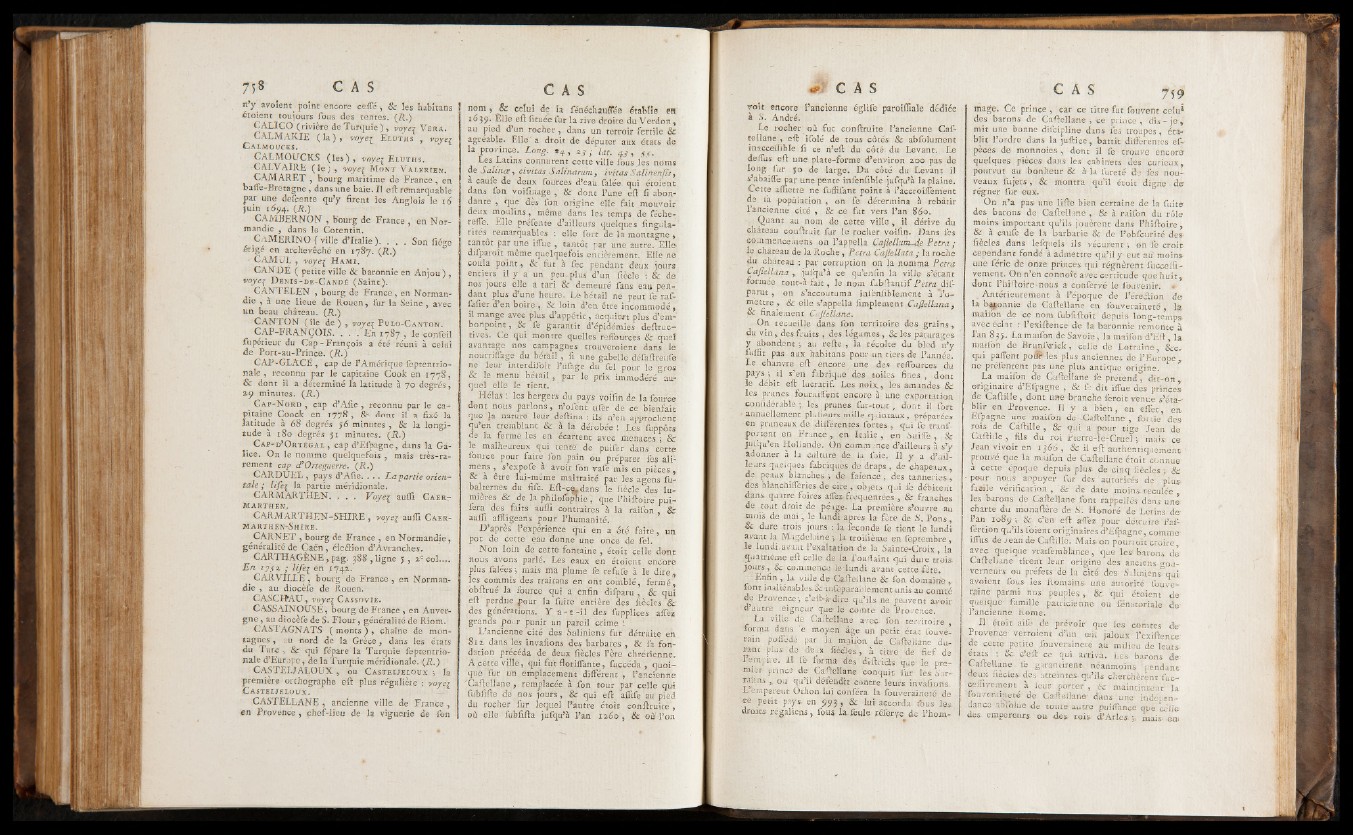 758 C A S
n'y avoient point encore cessé, & les habitans
étoient toujours sous des tentes. (R.)
CALICO (rivière de Turquie), voyez VERA.
CALMAKIE (la), voyez ELUTHS, voyez
CALMOUCKS.
CALMOUCKS (les), voyez ELUTHS.
CALVAIRE (le), voyez MONT VALERIEN.
CAMARET, bourg maritime de France, en
basse-Bretagne, dans une baie. Il est remarquable
par une descente qu'y firent les Anglois le 16
juin 1694. (R.)
CAMBERNON, bourg de France, en Nor-
mandie, dans le Cotentin.
CAMERINO (ville d'Italie). . . . Son siége
érigé en archevêché en 1787. (R.)
CAMUL, voyez HAMI.
CANDE (petite ville & baronnie en Anjou),
voyez DENIS-DE-CANDÉ (Saint).
CANTELEN, bourg de France, en Norman-
die, à une lieue de Rouen, sur la Seine, avec
un beau château. (R.)
CANTON (île de), voyez PULO-CANTON.
CAP-FRANÇOIS. . . . En 1787, le conseil
supérieur du Cap-François a été réuni à celui
de Port-au-Prince. (R.)
CAP-GLACÉ, cap de l'Amérique septentrio-
nale, reconnu par le capitaine Cook en 1778,
& dont il a déterminé la latitude à 70 degrés,
29 minutes. (R.)
CAP-NORD, cap d'Asie, reconnu par le ca-
pitaine Coock en 1778, & dont il a fixé la
latitude à 68 degrés 56 minutes, & la longi-
tude à 180 degrés 51 minutes. (R.)
CAP-D'ORTEGAL, cap d'Espagne, dans la Ga-
lice. On le nomme quelquefois, mais très-ra-
rement cap d'Orteguerre. (R.)
CARDUEL, pays d'Asie. . . . La partie orien-
tale; lisez la partie méridionale.
CARMARTHEN. . . . Voyez aussi CAER-
MARTHEN.
CARMARTHEN-SHIRE, voyez aussi CAER-
MARTHEN-SHIRE.
CARNET, bourg de France, en Normandie,
généralité de Caën, élection d'Avranches.
CARTHAGÈNE, pag. 388, ligne 5, 2e col....
En 1732; lisez en 1742.
CARVILLE, bourg de France, en Norman-
die, au diocèse de Rouen.
CASCHAU, voyez CASSOVIE.
CASSAINOUSE, bourg de France, en Auver-
gne, au diocèse de S. Flour, généralité de Riom.
CASTAGNATS (monts), chaîne de mon-
tagnes, au nord de la Grèce, dans les états
du Turc, & qui sépare la Turquie septentrio-
nale d'Europe, de la Turquie méridionale. (R.)
CASTELJALOUX, ou CASTRIJELOUX; la
première orthographe est plus régulière : voyez
CASTELJELOUX.
CASTELLANE, ancienne ville de France,
en Provence, chef-lieu de la viguerie de son
C A S
nom, & celui de la sénéchaussée établie en
1639. Elle est située sur la rive droite du Verdon,
au pied d'un rocher, dans un terroir fertile &
agréable. Elle a droit de députer aux états de
la province. Long. 24, 25; lat. 43, 55.
Les Latins connurent cette ville sous les noms
de Salinæ, civitas Salinarum, civitas Salinensis,
à cause de deux sources d'eau salée qui étoient
dans son voisinage, & dont l'une est si abon-
dante, que dès son origine elle fait mouvoir
deux moulins, même dans les temps de séche-
resse. Elle présente d'ailleurs quelques singula-
rités remarquables : elle sort de la montagne,
tantôt par une issue, tantôt par une autre. Elle
disparoît même quelquefois entièrement. Elle ne
coula point, & fut à sec pendant deux jours
entiers il y a un peu plus d'un siècle : & de
nos jours elle a tari & demeuré sans eau pen-
dant plus d'une heure. Le bétail ne peut se ras-
sasier d'en boire, & loin d'en être incommodé,
il mange avec plus d'appétit, acquiert plus d'em-
bonpoint, & se garantit d'épidémies destruc-
tives. Ce qui montre quelles ressources & quel
avantage nos campagnes trouveroient dans le
nourrissage du bétail, si une gabelle désastreuse
ne leur interdisoit l'usage du sel pour le gros
& le menu bétail, par le prix immodéré au-
quel elle le tient.
Hélas! les bergers du pays voisin de la source
dont nous parlons, n'osent user de ce bienfait
que la nature leur destina : ils n'en approchent
qu'en tremblant & à la dérobée! Les suppôts
de la ferme les en écartent avec menaces; &
le malheureux qui tente de puiser dans cette
source pour faire son pain ou préparer ses ali-
mens, s'expose à avoir son vase mis en pièces,
& à être lui-même maltraité par les agens su-
balternes du fisc. Est-ce dans le siècle des lu-
mières & de la philosophie, que l'histoire pui-
sera des faits aussi contraires à la raison, &
aussi affligeans pour l'humanité.
D'après l'expérience qui en a été faite, un
pot de cette eau donne une once de sel.
Non loin de cette fontaine, étoit celle dont
nous avons parlé. Les eaux en étoient encore
plus salées; mais ma plume se refuse à le dire,
les commis des traitans en ont comblé, fermé,
obstrué la source qui a enfin disparu, & qui
est perdue pour la suite entière des siècles &
des générations. Y a-t-il des supplices assez
grands pour punir un pareil crime!
L'ancienne cité des Saliniens fut détruite en
812 dans les invasions des barbares, & sa fon-
dation précéda de deux siècles l'ère chrétienne.
A cette ville, qui fut florissante, succéda, quoi-
que sur un emplacement différent, l'ancienne
Castellane, remplacée à son tour par celle qui
subsiste de nos jours, & qui est assise au pied
du rocher sur lequel l'autre étoit construite,
où elle subsista jusqu'à l'an 1260, & où l'on
C A S
voit encore l'ancienne église paroissiale dédiée
à S. André.
Le rocher où fut construite l'ancienne Cas-
tellane, est isolé de tous côtés & absolument
inaccessible si ce n'est du côté du Levant. Le
dessus est une plate-forme d'environ 200 pas de
long sur 50 de large. Du côté du Levant il
s'abaisse par une pente insensible jusqu'à la plaine.
Cette assiette ne suffisant point à l'accroissement
de la population, on se détermina à rebâtir
l'ancienne cité, & ce fut vers l'an 860.
Quant au nom de cette ville, il dérive du
château construit sur le rocher voisin. Dans ses
commencemens on l'appella Castellum de Petra;
le château de la Roche, Petra Castellata; la roche
du château : par corruption on la nomma Petra
Castellana, jusqu'à ce qu'enfin la ville s'étant
formée tout-à-fait, le nom substantif Petra dis-
parut, on s'accoutuma insensiblement à l'o-
mettre, & elle s'appella simplement Castellana,
& finalement Castellane.
On recueille dans son territoire des grains,
du vin, des fruits, des légumes, & les pâturages
y abondent; au reste, la récolte du bled n'y
suffit pas aux habitans pour un tiers de l'année.
Le chanvre est encore une des ressources du
pays; il s'en fabrique des toiles fines, dont
le débit est lucratif. Les noix, les amandes &
les prunes fournissent encore à une exportation
considérable; les prunes sur-tout, dont il sort
annuellement plusieurs mille quintaux, préparées
en pruneaux de différentes sortes, qui se trans-
portent en France, en Italie, en Suisse, &
jusqu'en Hollande. On commence d'ailleurs à s'y
adonner à la culture de la soie. Il y a d'ail-
leurs quelques fabriques de draps, de chapeaux,
de peaux blanches, de faïence, des tanneries,
des blanchisseries de cire, objets qui se débitent
dans quatre foires assez fréquentées, & franches
de tout droit de péage. La première s'ouvre au
mois de mai, le lundi après la fête de S. Pons,
& dure trois jours : la seconde se tient le lundi
avant la Magdelaine; la troisième en septembre,
le lundi avant l'exaltation de la Sainte-Croix, la
quatrième est celle de la Toussaint qui dure trois
jours, & commence le lundi avant cette fête.
Enfin, la ville de Castellane & son domaine,
sont inaliénables & inséparablement unis au comté
de Provence, c'est-à-dire qu'ils ne peuvent avoir
d'autre seigneur que le comte de Provence.
La ville de Castellane avec son territoire,
forma dans le moyen âge un petit état souve-
rain possédé par la maison de Castellane du-
rant plus de deux siècles, à titre de fief de
l'empire. Il se forma des districts que le pre-
mier prince de Castellane conquit sur les Sar-
rasins, ou qu'il défendit contre leurs invasions.
L'empereur Othon lui conféra la souveraineté de
ce petit pays en 993, & lui accorda tous les
droits régaliens, sous la seule réserve de l'hom-
C A S 759
mage. Ce prince, car ce titre fut souvent celui
des barons de Castellane, ce prince, dis-je,
mit une bonne discipline dans ses troupes, éta-
blit l'ordre dans la justice, battit différentes es-
pèces de monnoies, dont il se trouve encore
quelques pièces dans les cabinets des curieux,
pourvut au bonheur & à la sureté de ses nou-
veaux sujets, & montra qu'il étoit digne de
régner sur eux.
On n'a pas une liste bien certaine de la suite
des barons de Castellane, & à raison du rôle
moins important qu'ils jouèrent dans l'histoire,
& à cause de la barbarie & de l'obscurité des
siècles dans lesquels ils vécurent, on se croit
cependant fondé à admettre qu'il y eut au moins
une série de onze princes qui régnèrent successi-
vement. On n'en connoît avec certitude que huit,
dont l'histoire nous a conservé le souvenir.
Antérieurement à l'époque de l'érection de
la baronnie de Castellane en souveraineté, la
maison de ce nom subsistoit depuis long-temps
avec éclat : l'existence de la baronnie remonte à
l'an 835. La maison de Savoie, la maison d'Est, la
maison de Brunswick, celle de Lorraine, &c.
qui passent pour les plus anciennes de l'Europe,
ne présentent pas une plus antique origine.
La maison de Castellane se prétend, dit-on,
originaire d'Espagne, & se dit issue des princes
de Castille, dont une branche seroit venue s'éta-
blir en Provence. Il y a bien, en effet, en
Espagne une maison de Castellane, sortie des
rois de Castille, & qui a pour tige Jean de
Castille, fils du roi Pierre-le-Cruel; mais ce
Jean vivoit en 1360, & il est authentiquement
prouvé que la maison de Castellane étoit connue
à cette époque depuis plus de cinq siècles; &
pour nous appuyer sur des autorités de plus
facile vérification, & de date moins reculée,
les barons de Castellane sont rappellés dans une
charte du monastère de S. Honoré de Lerins de
l'an 1089; & c'en est assez pour détruire l'as-
sertion qu'ils soient originaires d'Espagne, comme
issus de Jean de Castille. Mais on pourroit croire,
avec quelque vraisemblance, que les barons de
Castellane tirent leur origine des anciens gou-
verneurs ou préfets de la cité des Saliniens qui
avoient sous les Romains une autorité souve-
raine parmi nos peuples, & qui étoient de
quelque famille patricienne ou sénatoriale de
l'ancienne Rome.
Il étoit aisé de prévoir que les comtes de
Provence verroient d'un œil jaloux l'existence
de cette petite souveraineté au milieu de leurs
états : & c'est ce qui arriva. Les barons de
Castellane se garantirent néanmoins pendant
deux siècles des atteintes qu'ils cherchèrent suc-
cessivement à leur porter, & maintinrent la
souveraineté de Castellane dans une indépen-
dance absolue de toute autre puissance que celle
des empereurs ou des rois d'Arles; mais on